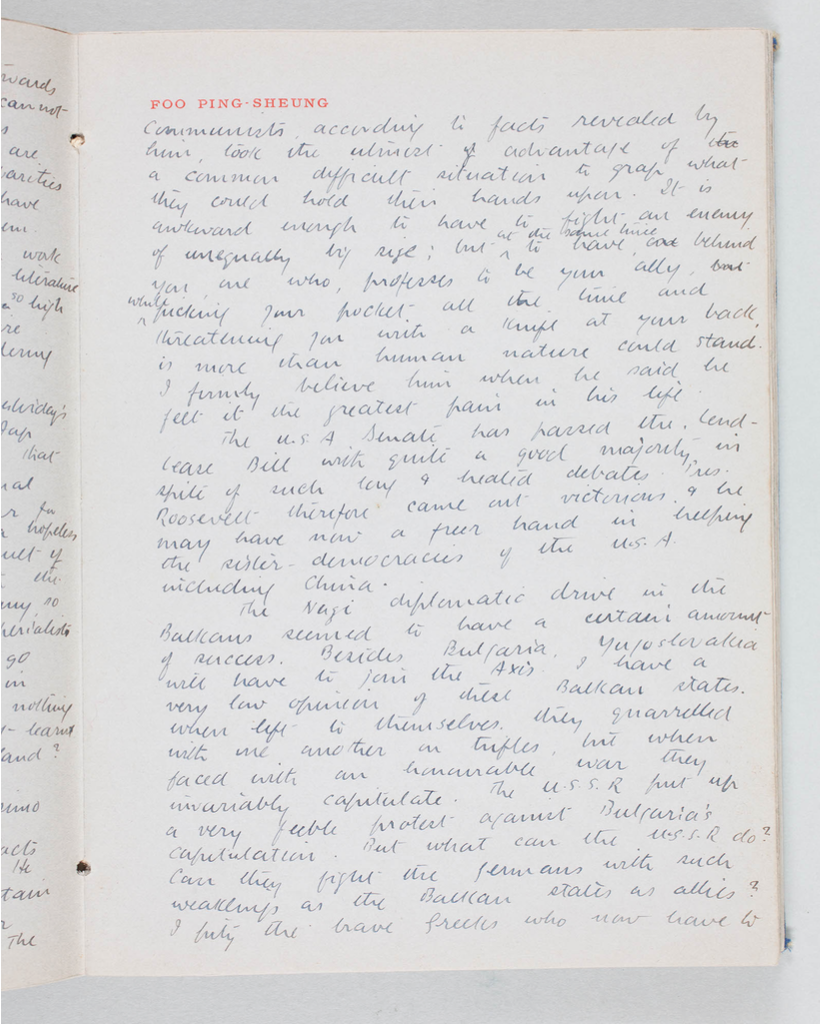 wards
cannot
s
are
parities
have
em.
work
literature
so high
re
dering
esterday's
Jap
that
ual
for
hopeless
ult of
the
ny, so
perialists
go
in
nothing
learnt
land?
simo
acts
He
tain
The
FOO PING-SHEUNG
Communists, according to facts revealed by
him, took the utmost of advantage of the
a common difficult situation to grap what
they could hold their hands upon. It is
awkward enough to have to fight an enemy
at the same time
of unequally big size; but to have, and behind
you, one who, professes to be your ally, but
while
picking your pocket all the time and
threatening you with a knife at your back,
is more than human nature could stand.
I firmly believe him when he said he
felt it the greatest pain in his life.
The U.S.A. Senate has passed the Lend-
Lease Bill with quite a good majority in
spite of such long & heated debates. Pres.
Roosevelt therefore came out victorious, & he
may have now a freer hand in helping
the sister-democracies of the U.S.A.
including China.
The Nazi diplomatic drive in the
Balkans seemed to have a certain amount
of success. Besides Bulgaria, Yugoslovakia
will have to join the Axis. I have a
very low opinion of these Balkan states.
when left to themselves, they quarrelled
with one another on trifles, but when
faced with an honourable war they
invariably capitulate. The U.S.S.R put up
a very feeble protest against Bulgaria's
capitulation. But what can the U.S.S.R do?
Can they fight the Germans with such
weaklings as the Balkan states as allies?
I pity the brave Greeks who now have to